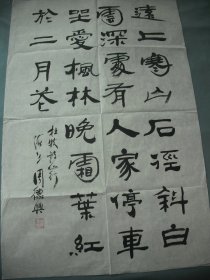 遠上寒山石徑斜白
雲深處有人家停車
坐愛楓林晚霜葉紅
於二月花
杜牧詩山行
周德興